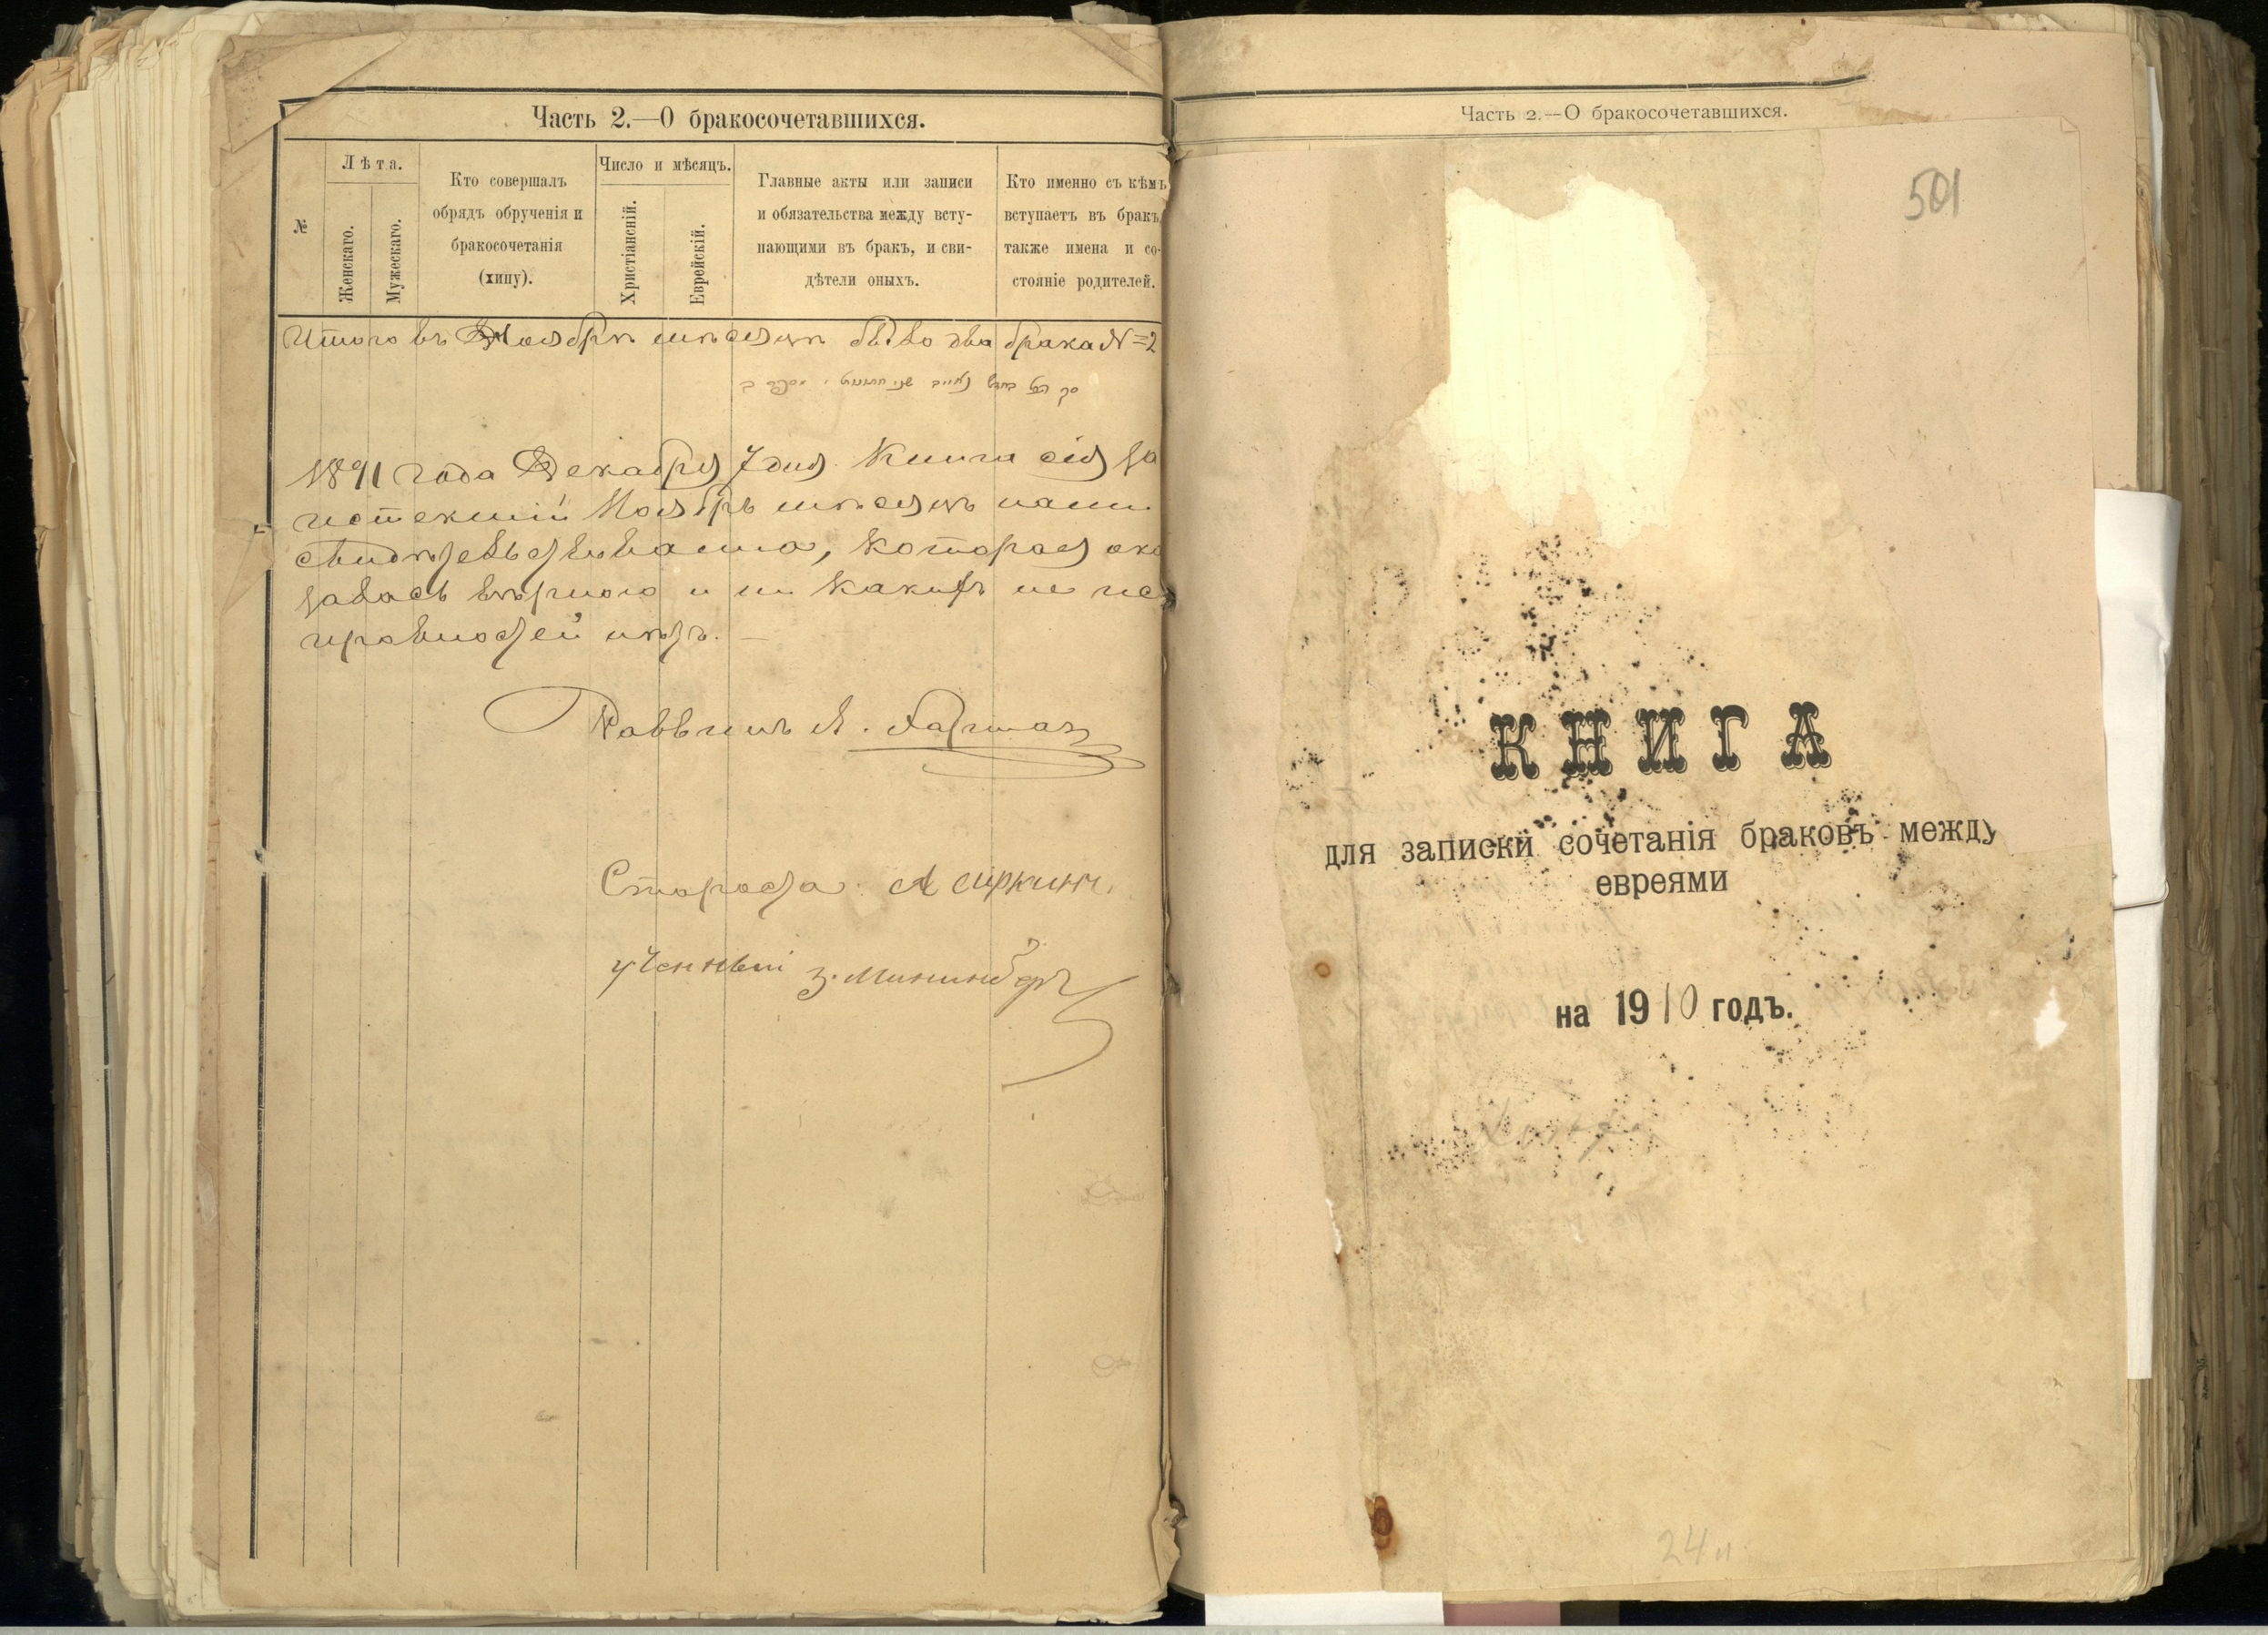 Часть 2.—О бракосочетавшихся.
№
Лѣта.
Женскаго.
Мужескаго.
Кто совершалъ
обрядъ обрученія и
бракосочетанія
(хипу).
Число и мѣсяцъ.
Христіанскій.
Еврейскій.
Главные акты или записи
и обязательства между всту-
пающими въ бракъ, и сви-
дѣтели оныхъ.
Кто именно съ кѣмъ
вступаетъ въ бракъ,
также имена и со-
стояніе родителей.
Итого въ Ноябрѣ мѣсяцѣ было два брака № = 2
1891 года Декабря 7 дня. Книга сія за
истекшій Ноябрь мѣсяцъ нами
свидѣтельствована, которая ока
залась вѣрною и ни какихъ не ис
правностей нѣтъ.
Раввинъ
Староста А Сиркинъ.
ученный З.
Часть 2.—О бракосочетавшихся.
501
КНИГА
для записки сочетанія браковъ между
евреями
на 1910 годъ.
24 л